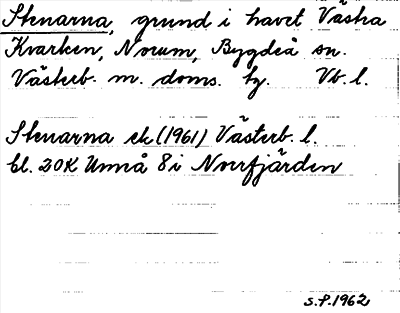 Stenarna, grund i havet Västra
Kvarken, Norum, Bygdeå sn.
Västerb. m. doms. hg. Vb. l.
Stenarna ek (1961) Västerb. l.
bl. 20K Umeå 8 i Norrfjärden
S.P. 1962